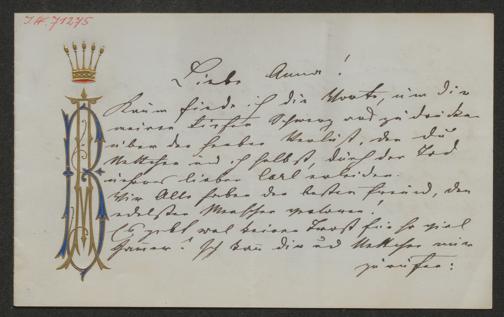 I.N. 71275
Liebe Anna!
Kaum finde ich die Worte, um Dir
meinen tiefen Schmerz auszudrücken
über den herben Verlust, den Du
und ich selbst, durch den Tod
unseres lieben Carl erleiden.
Wir Alle haben den besten Freund, den
edelsten Menschen verloren!
Es gibt wol keinen Trost für so viel
Jammer! Ich kann Dir und nur
zurufen: